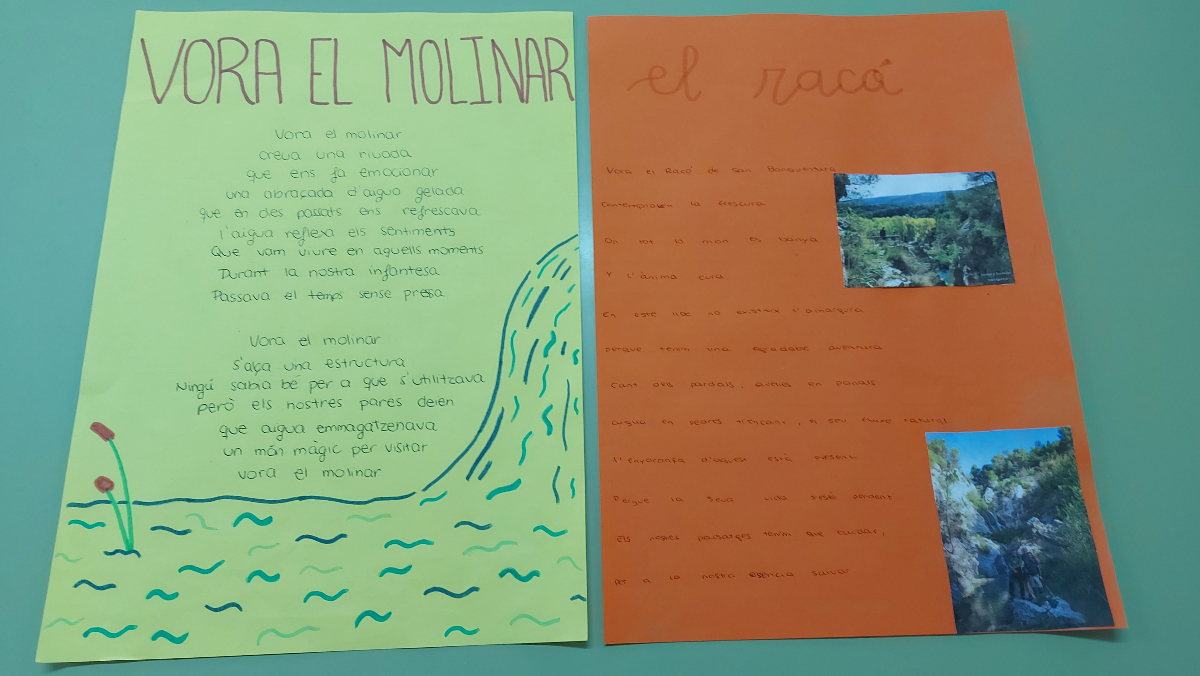 VORA EL MOLINAR
Vora el molinar
creua una riuada
que ens fa emocionar
una abraçada d'aigua gelada
que en dies passats ens refrescava
l'aigua reflexa els sentiments
Que vam viure en aquells moments
Durant la nostra infantesa
Passava el temps sense pressa
Vora el molinar
s'alça una estructura
Ningú sabia bé per a que s'utilitzava
però els nostres pares deien
que aigua emmagatzenava
un món màgic per visitar
vora el molinar
el racó
Vora el Racó de San Bonaventura
Contemplasen la frescura
On tot lo mon es banya
Y l'ánima cura
En este lloc no existix l'amargura
perque tenim una agradable aventura
Cant dels pardals, arbres en
aigua en pedres, el seu natural
l'enyorança d'aquest està present
Perque la seua vida s'està perdent
Els nostres paisatges tenim que cuidar,
per a la nostra esencia salvar